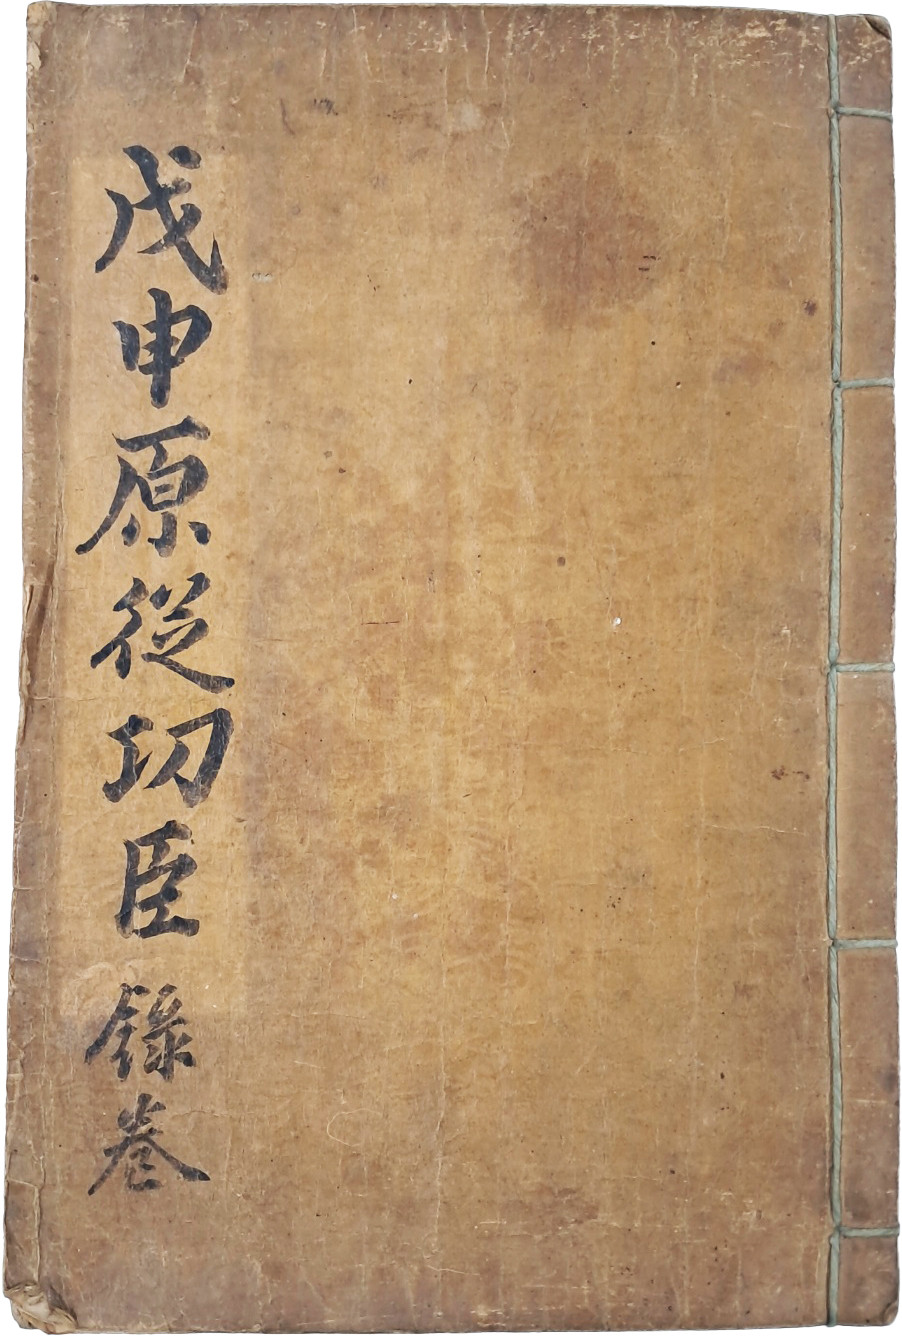 戊申原從功臣錄卷